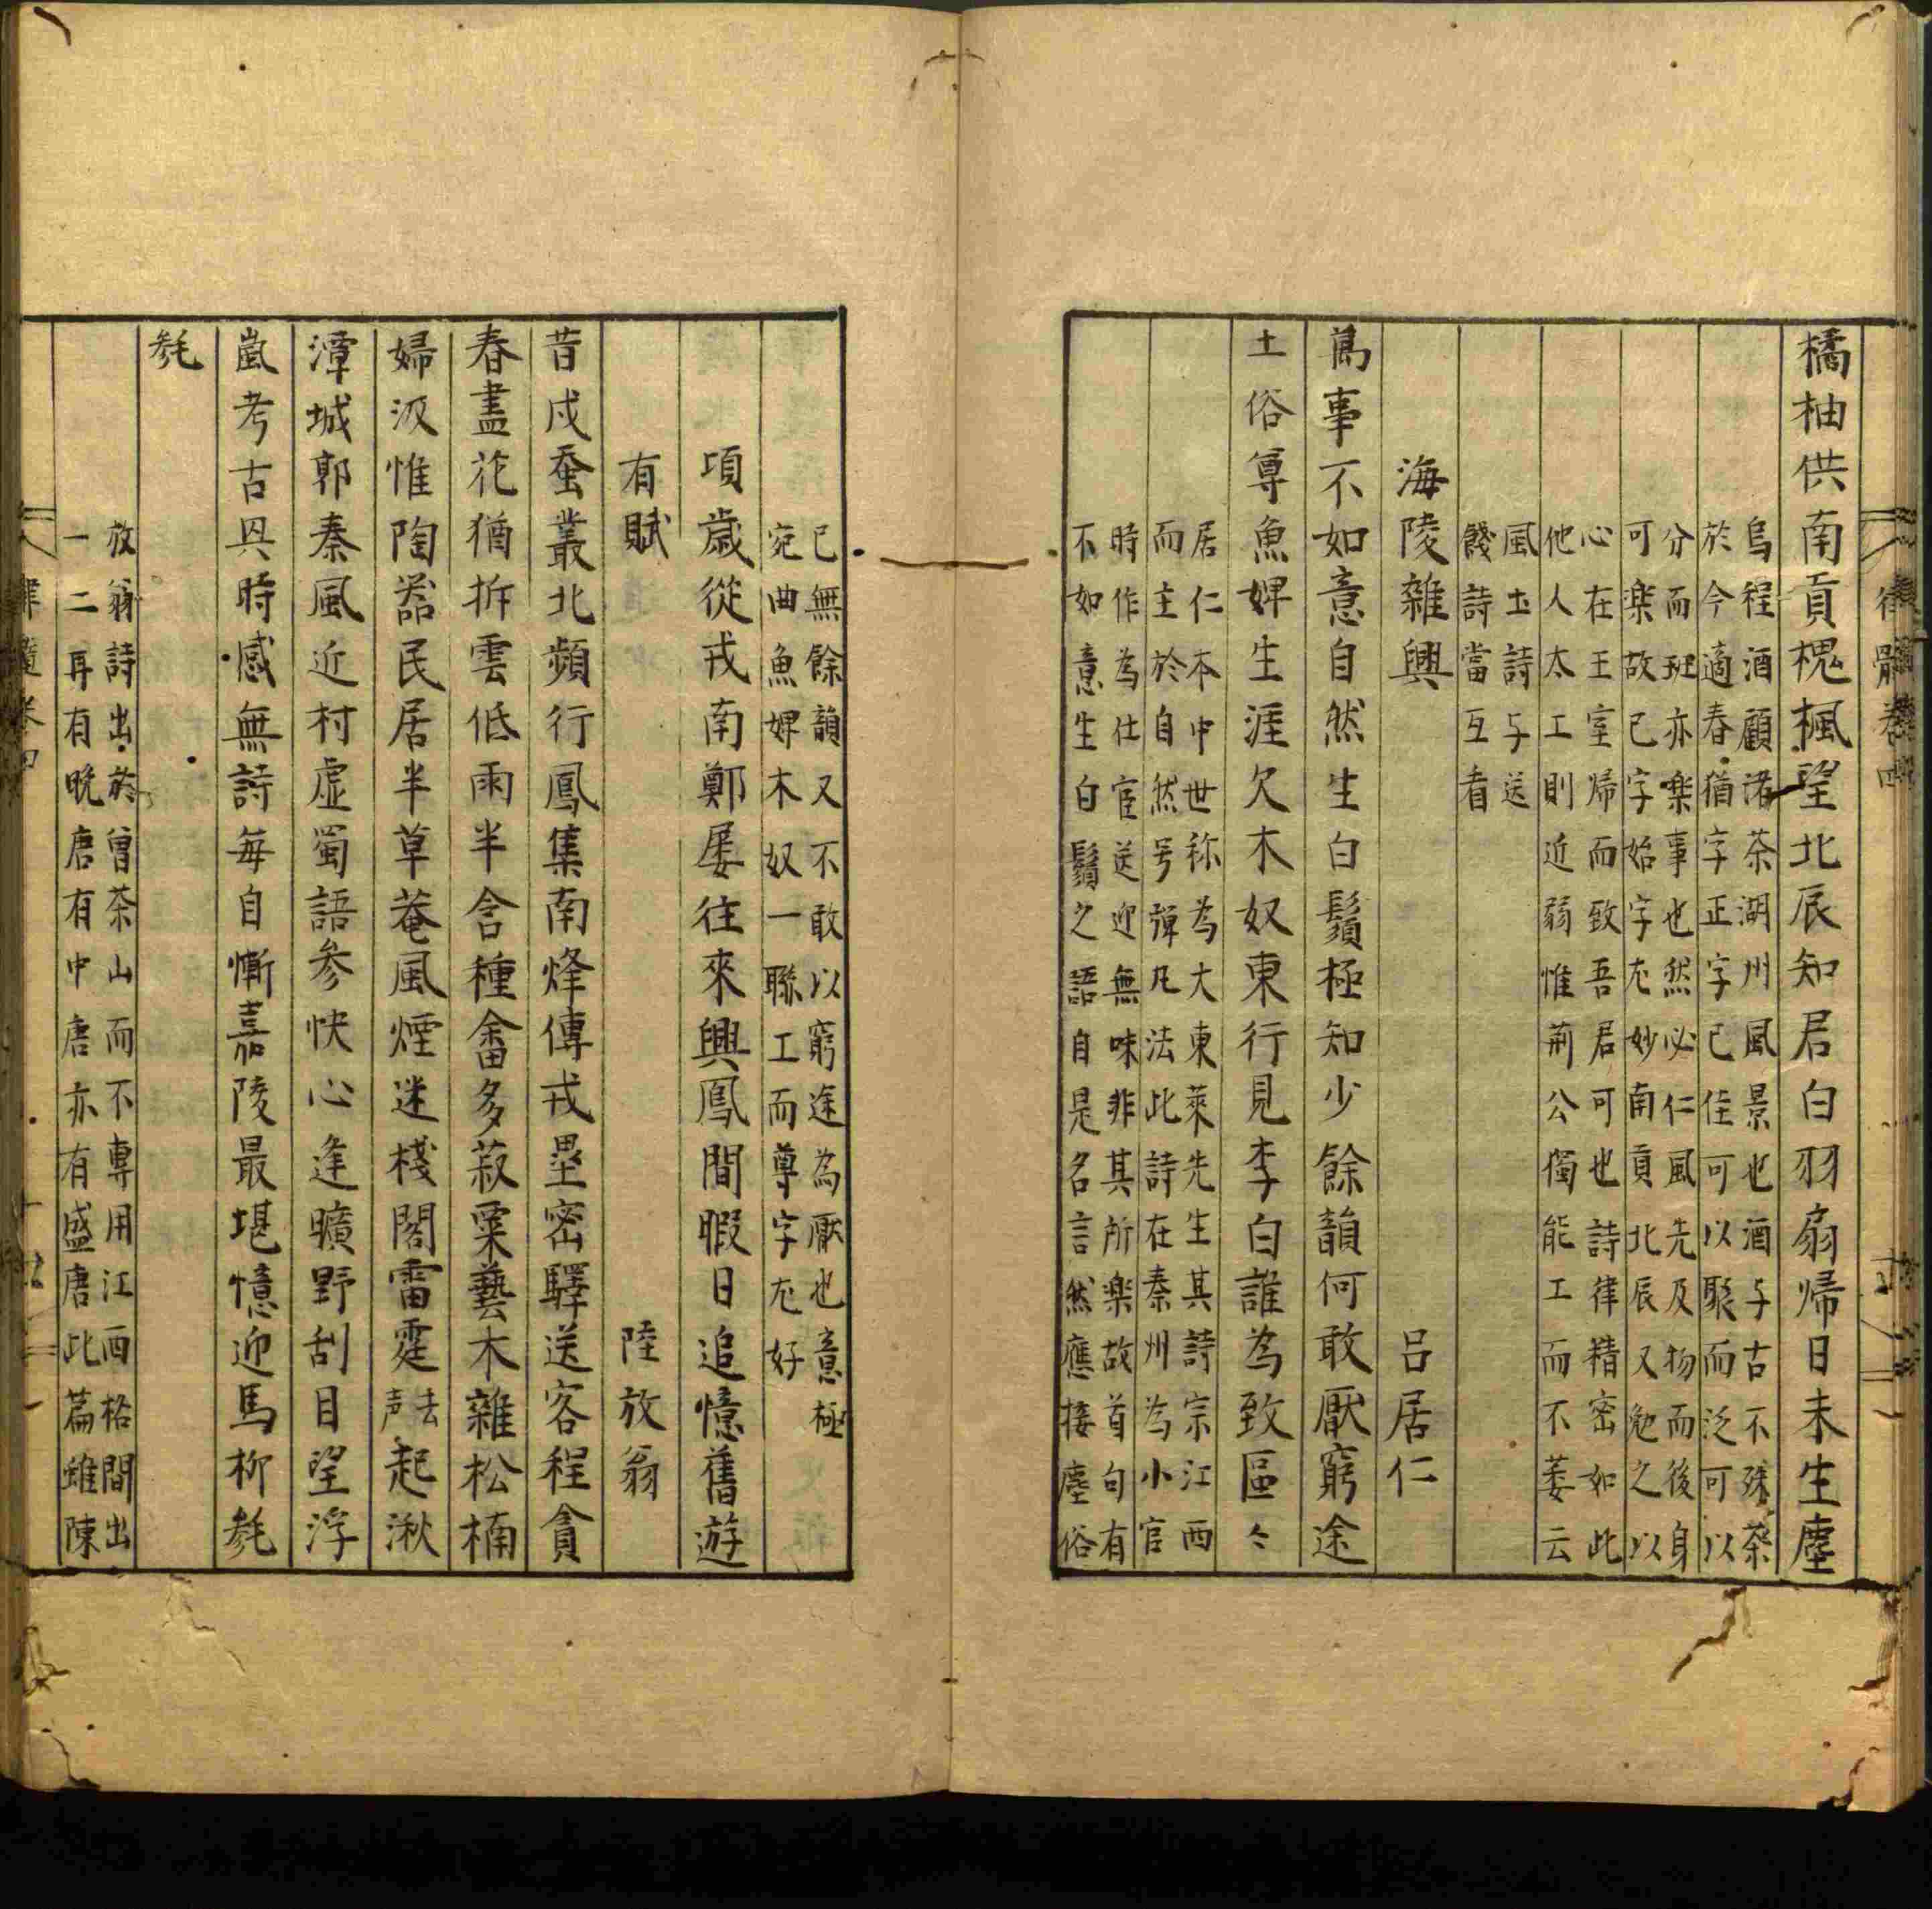 律髓卷四
橘柚供南貢槐楓望北辰知君白羽扇歸日未生塵
烏程酒顧渚茶湖州風景也酒与古不殊茶
於今適春猶字正字已佳可以聚而泛可以
分而班亦楽事也然必仁風先及物而後身
可楽故已字始字尤妙南貢北辰又勉之以
心在王室帰而致吾君可也詩律精密如此
他人太工則近弱惟荊公獨能工而不萎云
風土詩与送
餞詩當互看
海陵雜興 吕居仁
萬事不如意自然生白鬚極知少餘韻何敢厭窮途
土俗尊魚婢生涯欠木奴東行見李白誰為致區々
居仁本中世称為大東萊先生其詩宗江西
而主於自然号弾凡法此詩在秦州為小官
時作為仕宦送迎無味非其所楽故首句有
不如意生白鬚之語自是名言然應接塵俗
已無餘韻又不敢以窮途為厭也意極
宛曲魚婢木奴一聯工而尊字尤好
項歳從戎南鄭屢往來興鳳間暇日追憶舊遊
有賦 陸放翁
昔戍蚕叢北頻行鳳集南烽傳戎壘密驛送客程貪
春盡花猶拆雲低雨半含種畬多菽粟藝木雜松楠
婦汲惟陶器民居半草菴風煙迷棧閣雷霆去声起湫
潭城郭秦風近村虛蜀語参快心逢曠野刮目望浮
嵐考古興時感無詩每自慚嘉陵最堪憶迎馬柳毿
毿
放翁詩出於曾茶山而不專用江西格間出
一二耳有晩唐有中唐亦有盛唐此篇雖陳